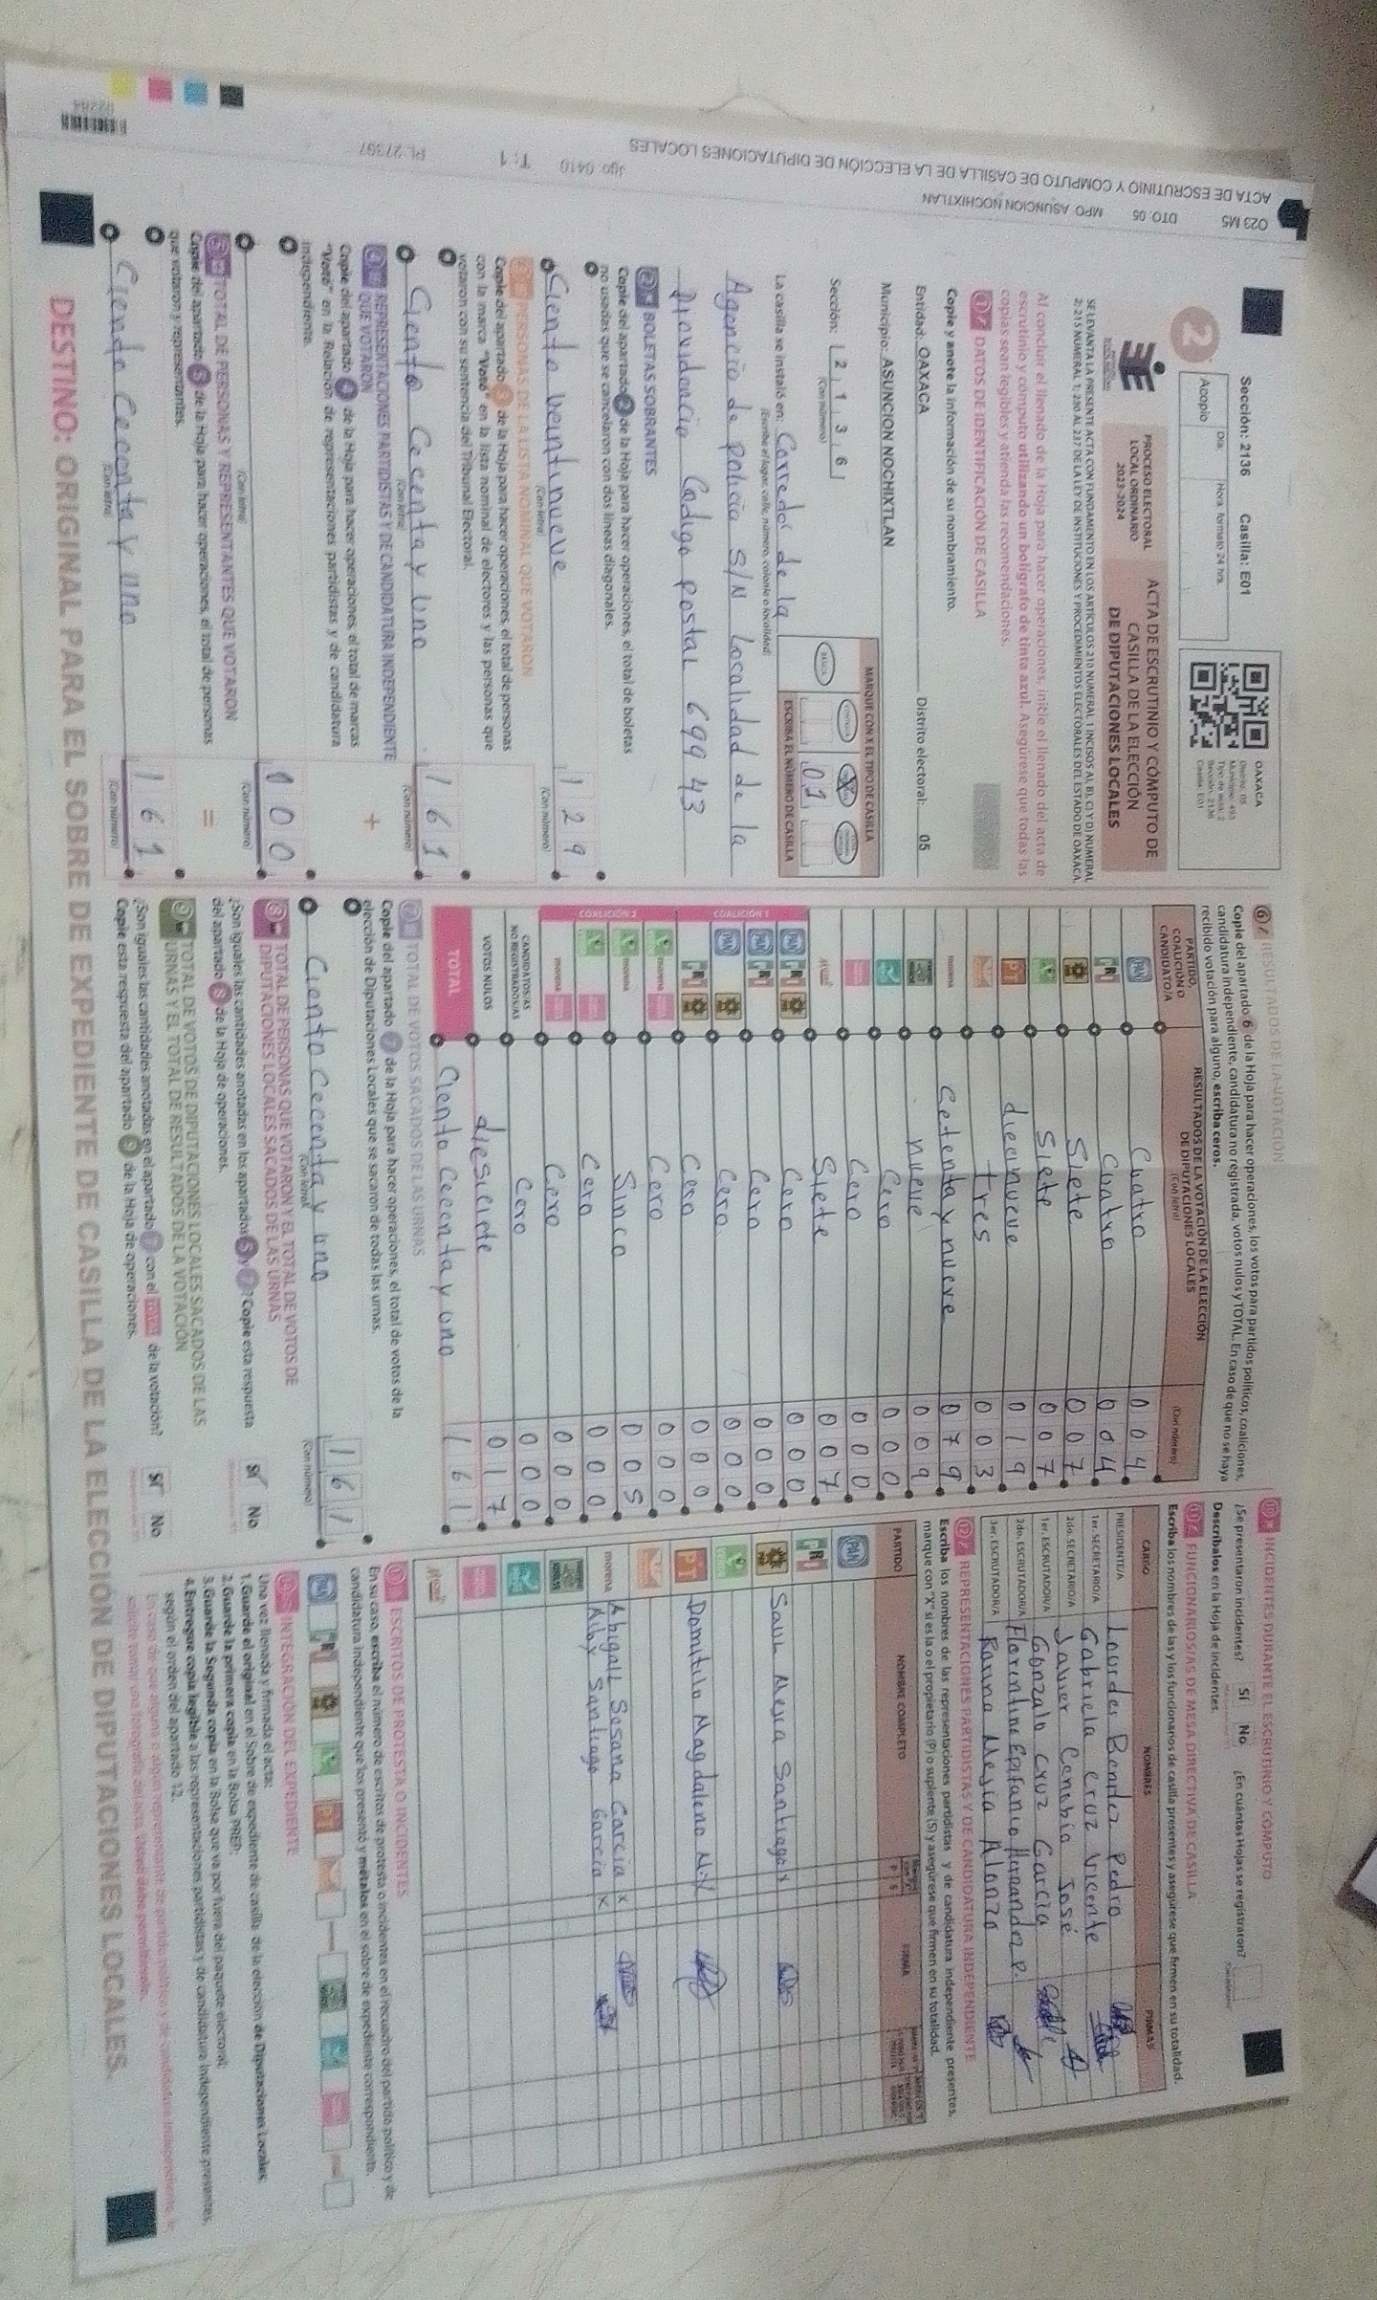 023 M5 DTO. 05 MPO. ASUNCION NOCHIXTLAN
ACTA DE ESCRUTINIO Y COMPUTO DE CASILLA DE LA ELECCIÓN DE DIPUTACIONES LOCALES
T: 1
PL: 27397
02284
Sección: 2136 Casilla: E01
Día Hora formato 24 hrs.
Acopio
2
OAXACA
PROCESO ELECTORAL
LOCAL ORDINARIO
2023-2024
ACTA DE ESCRUTINIO Y CÓMPUTO DE
CASILLA DE LA ELECCIÓN
DE DIPUTACIONES LOCALES
Al concluir el llenado de la Hoja para hacer operaciones, inicie el llenado del acta de
escrutinio y cómputo utilizando un bolígrafo de tinta azul. Asegúrese que todas las
copias sean legibles y atienda las recomendaciones.
1 DATOS DE IDENTIFICACIÓN DE CASILLA
Copie y anote la información de su nombramiento.
Entidad: OAXACA Distrito electoral: 05
Municipio: ASUNCION NOCHIXTLAN
Sección: 2 1 3 6
(Con número)
MARQUE CON X EL TIPO DE CASILLA
ESCRIBA EL NÚMERO DE CASILLA
01
La casilla se instaló en: Corredor de la
(Escriba el lugar, calle, número, colonia o localidad)
Agencia de policia S/N Localidad de la
Providencia Codigo postal 69943
2 BOLETAS SOBRANTES
Copie del apartado 2 de la Hoja para hacer operaciones, el total de boletas
no usadas que se cancelaron con dos líneas diagonales.
Ciento veintinueve 129
(Con letra) (Con número)
3 PERSONAS DE LA LISTA NOMINAL QUE VOTARON
Copie del apartado 3 de la Hoja para hacer operaciones, el total de personas
con la marca "Votó" en la lista nominal de electores y las personas que
votaron con su sentencia del Tribunal Electoral.
Ciento Cecenta y uno 161
(Con letra) (Con número)
4 REPRESENTACIONES PARTIDISTAS Y DE CANDIDATURA INDEPENDIENTE
QUE VOTARON
Copie del apartado 4 de la Hoja para hacer operaciones, el total de marcas
"Votó" en la Relación de representaciones partidistas y de candidatura
independiente.
+
000
(Con letra) (Con número)
5 TOTAL DE PERSONAS Y REPRESENTANTES QUE VOTARON
Copie del apartado 5 de la Hoja para hacer operaciones, el total de personas
que votaron y representantes.
=
Ciento Cecenta y uno 161
(Con letra) (Con número)
6 RESULTADOS DE LA VOTACIÓN
Copie del apartado 6 de la Hoja para hacer operaciones, los votos para partidos políticos, coaliciones,
candidatura independiente, candidatura no registrada, votos nulos y TOTAL. En caso de que no se haya
recibido votación para alguno, escriba ceros.
PARTIDO,
COALICIÓN O
CANDIDATO/A
RESULTADOS DE LA VOTACIÓN DE LA ELECCIÓN
DE DIPUTACIONES LOCALES
(Con letra) (Con número)
PAN Cuatro 004
PRI Cuatro 004
PRD Siete 007
Siete 007
PT diecinueve 019
tres 003
morena Cetenta y nueve 079
nueve 009
Cero 000
Cero 000
Siete 007
COALICIÓN 1
PAN PRI PRD Cero 000
PAN PRI Cero 000
PAN PRD Cero 000
PRI PRD Cero 000
COALICIÓN 2
morena Cero 000
morena Sinco 005
Cero 000
morena Cero 000
CANDIDATOS/AS
NO REGISTRADOS/AS Cero 000
VOTOS NULOS diesciete 017
TOTAL Ciento Cecenta y uno 161
7 TOTAL DE VOTOS SACADOS DE LAS URNAS
Copie del apartado 7 de la Hoja para hacer operaciones, el total de votos de la
elección de Diputaciones Locales que se sacaron de todas las urnas.
Ciento Cecenta y uno 161
(Con letra) (Con número)
8 TOTAL DE PERSONAS QUE VOTARON Y EL TOTAL DE VOTOS DE
DIPUTACIONES LOCALES SACADOS DE LAS URNAS
¿Son iguales las cantidades anotadas en los apartados 5 y 7? Copie esta respuesta
del apartado 8 de la Hoja de operaciones.
SÍ No
9 TOTAL DE VOTOS DE DIPUTACIONES LOCALES SACADOS DE LAS
URNAS Y EL TOTAL DE RESULTADOS DE LA VOTACIÓN
¿Son iguales las cantidades anotadas en el apartado 7 con el TOTAL de la votación?
Copie esta respuesta del apartado 9 de la Hoja de operaciones.
SÍ No
10 INCIDENTES DURANTE EL ESCRUTINIO Y CÓMPUTO
¿Se presentaron incidentes? SÍ No ¿En cuántas Hojas se registraron?
Descríbalos en la Hoja de incidentes.
11 FUNCIONARIOS/AS DE MESA DIRECTIVA DE CASILLA
Escriba los nombres de las y los funcionarios de casilla presentes y asegúrese que firmen en su totalidad.
CARGO NOMBRES FIRMAS
PRESIDENTE/A Lourdes Pedro
1er. SECRETARIO/A Gabriela Cruz Vicente
2do. SECRETARIO/A Javier Cenobio José
1er. ESCRUTADOR/A Gonzalo Cruz García
2do. ESCRUTADOR/A Florentine Epifanio Hernandez P.
3er. ESCRUTADOR/A Karina Mesia Alonzo
12 REPRESENTACIONES PARTIDISTAS Y DE CANDIDATURA INDEPENDIENTE
Escriba los nombres de las representaciones partidistas y de candidatura independiente presentes,
marque con "X" si es la o el propietario (P) o suplente (S) y asegúrese que firmen en su totalidad.
PARTIDO NOMBRE COMPLETO FIRMA
PAN
PRI
PRD Saul Santiago
PT Domitilo Magdaleno
morena Abigail Sesana Garcia x
Santiago Garcia x
13 ESCRITOS DE PROTESTA O INCIDENTES
En su caso, escriba el número de escritos de protesta o incidentes en el recuadro del partido político y de
candidatura independiente que los presentó y métalos en el sobre de expediente correspondiente.
INTEGRACIÓN DEL EXPEDIENTE
Una vez llenada y firmada el acta:
1. Guarde el original en el Sobre de expediente de casilla de la elección de Diputaciones Locales.
2. Guarde la primera copia en la Bolsa PREP.
3. Guarde la Segunda copia en la Bolsa que va por fuera del paquete electoral.
4. Entregue copia legible a las representaciones partidistas y de candidatura independiente presentes,
según el orden del apartado 12.
DESTINO: ORIGINAL PARA EL SOBRE DE EXPEDIENTE DE CASILLA DE LA ELECCIÓN DE DIPUTACIONES LOCALES.